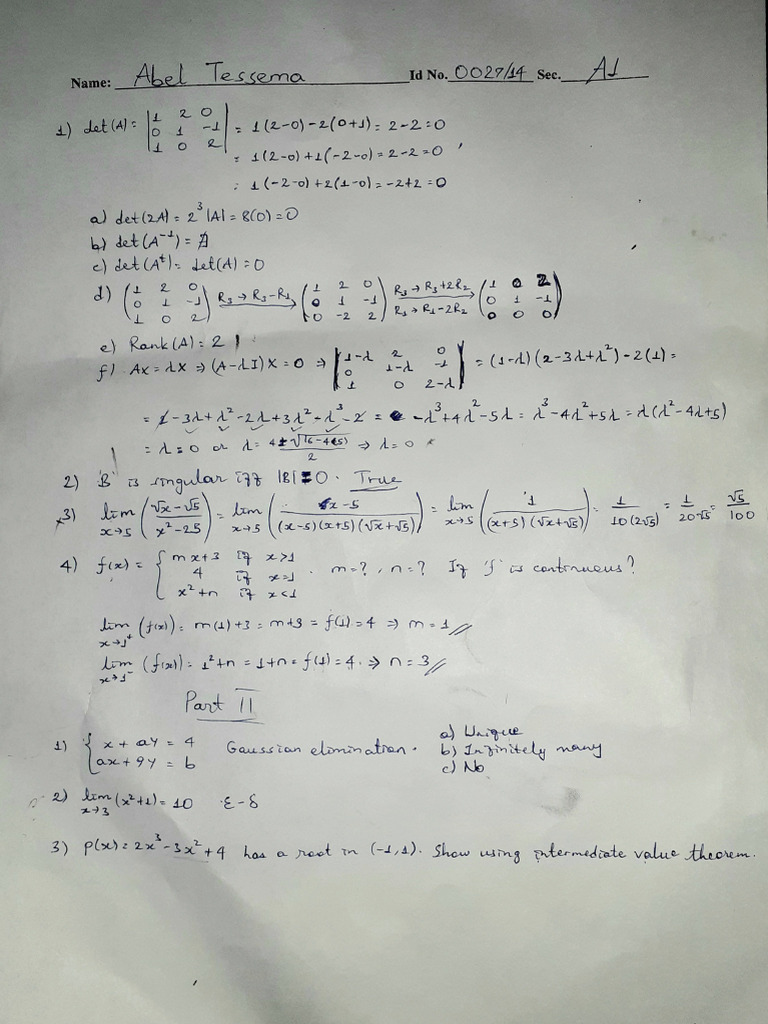 Name: Abel Tessema Id No. 0027/14 Sec. A1
1) det(A) = |1 2 0; 0 1 -1; 1 0 2| = 1(2-0)-2(0+1) = 2-2 = 0
= 1(2-0)+1(-2-0) = 2-2 = 0
: 1(-2-0)+2(1-0) = -2+2 = 0
a) det(2A) = 2³|A| = 8(0) = 0
b) det(A⁻¹) = ∄
c) det(Aᵗ) = det(A) = 0
d) (1 2 0; 0 1 -1; 1 0 2) R₃→R₃-R₁ (1 2 0; 0 1 -1; 0 -2 2) R₃→R₃+2R₂ R₁→R₁-2R₂ (1 0 2; 0 1 -1; 0 0 0)
e) Rank(A) = 2
f) AX = λX ⇒ (A-λI)X = 0 ⇒ |1-λ 2 0; 0 1-λ -1; 1 0 2-λ| = (1-λ)(2-3λ+λ²)-2(1) =
= 2-3λ+λ²-2λ+3λ²-λ³-2 = -λ³+4λ²-5λ = λ³-4λ²+5λ = λ(λ²-4λ+5)
= λ = 0 or λ = (4±√(16-4(5)))/2 ⇒ λ = 0
2) 'B' is singular iff |B| = 0. True
3) lim x→5 ((√x-√5)/(x²-25)) = lim x→5 (x-5/((x-5)(x+5)(√x+√5))) = lim x→5 (1/((x+5)(√x+√5))) = 1/(10(2√5)) = 1/(20√5) = √5/100
4) f(x) = { mx+3 if x>1; 4 if x=1; x²+n if x<1 . m=?, n=? If 'f' is continuous?
lim x→1⁺ (f(x)) = m(1)+3 = m+3 = f(1) = 4 ⇒ m = 1//
lim x→1⁻ (f(x)) = 1²+n = 1+n = f(1) = 4 ⇒ n = 3//
Part II
1) { x + ay = 4; ax + 9y = b Gaussian elimination. a) Unique
b) Infinitely many
c) No
2) lim x→3 (x²+1) = 10 ε-δ
3) P(x) = 2x³-3x²+4 has a root in (-1,1). Show using intermediate value theorem.